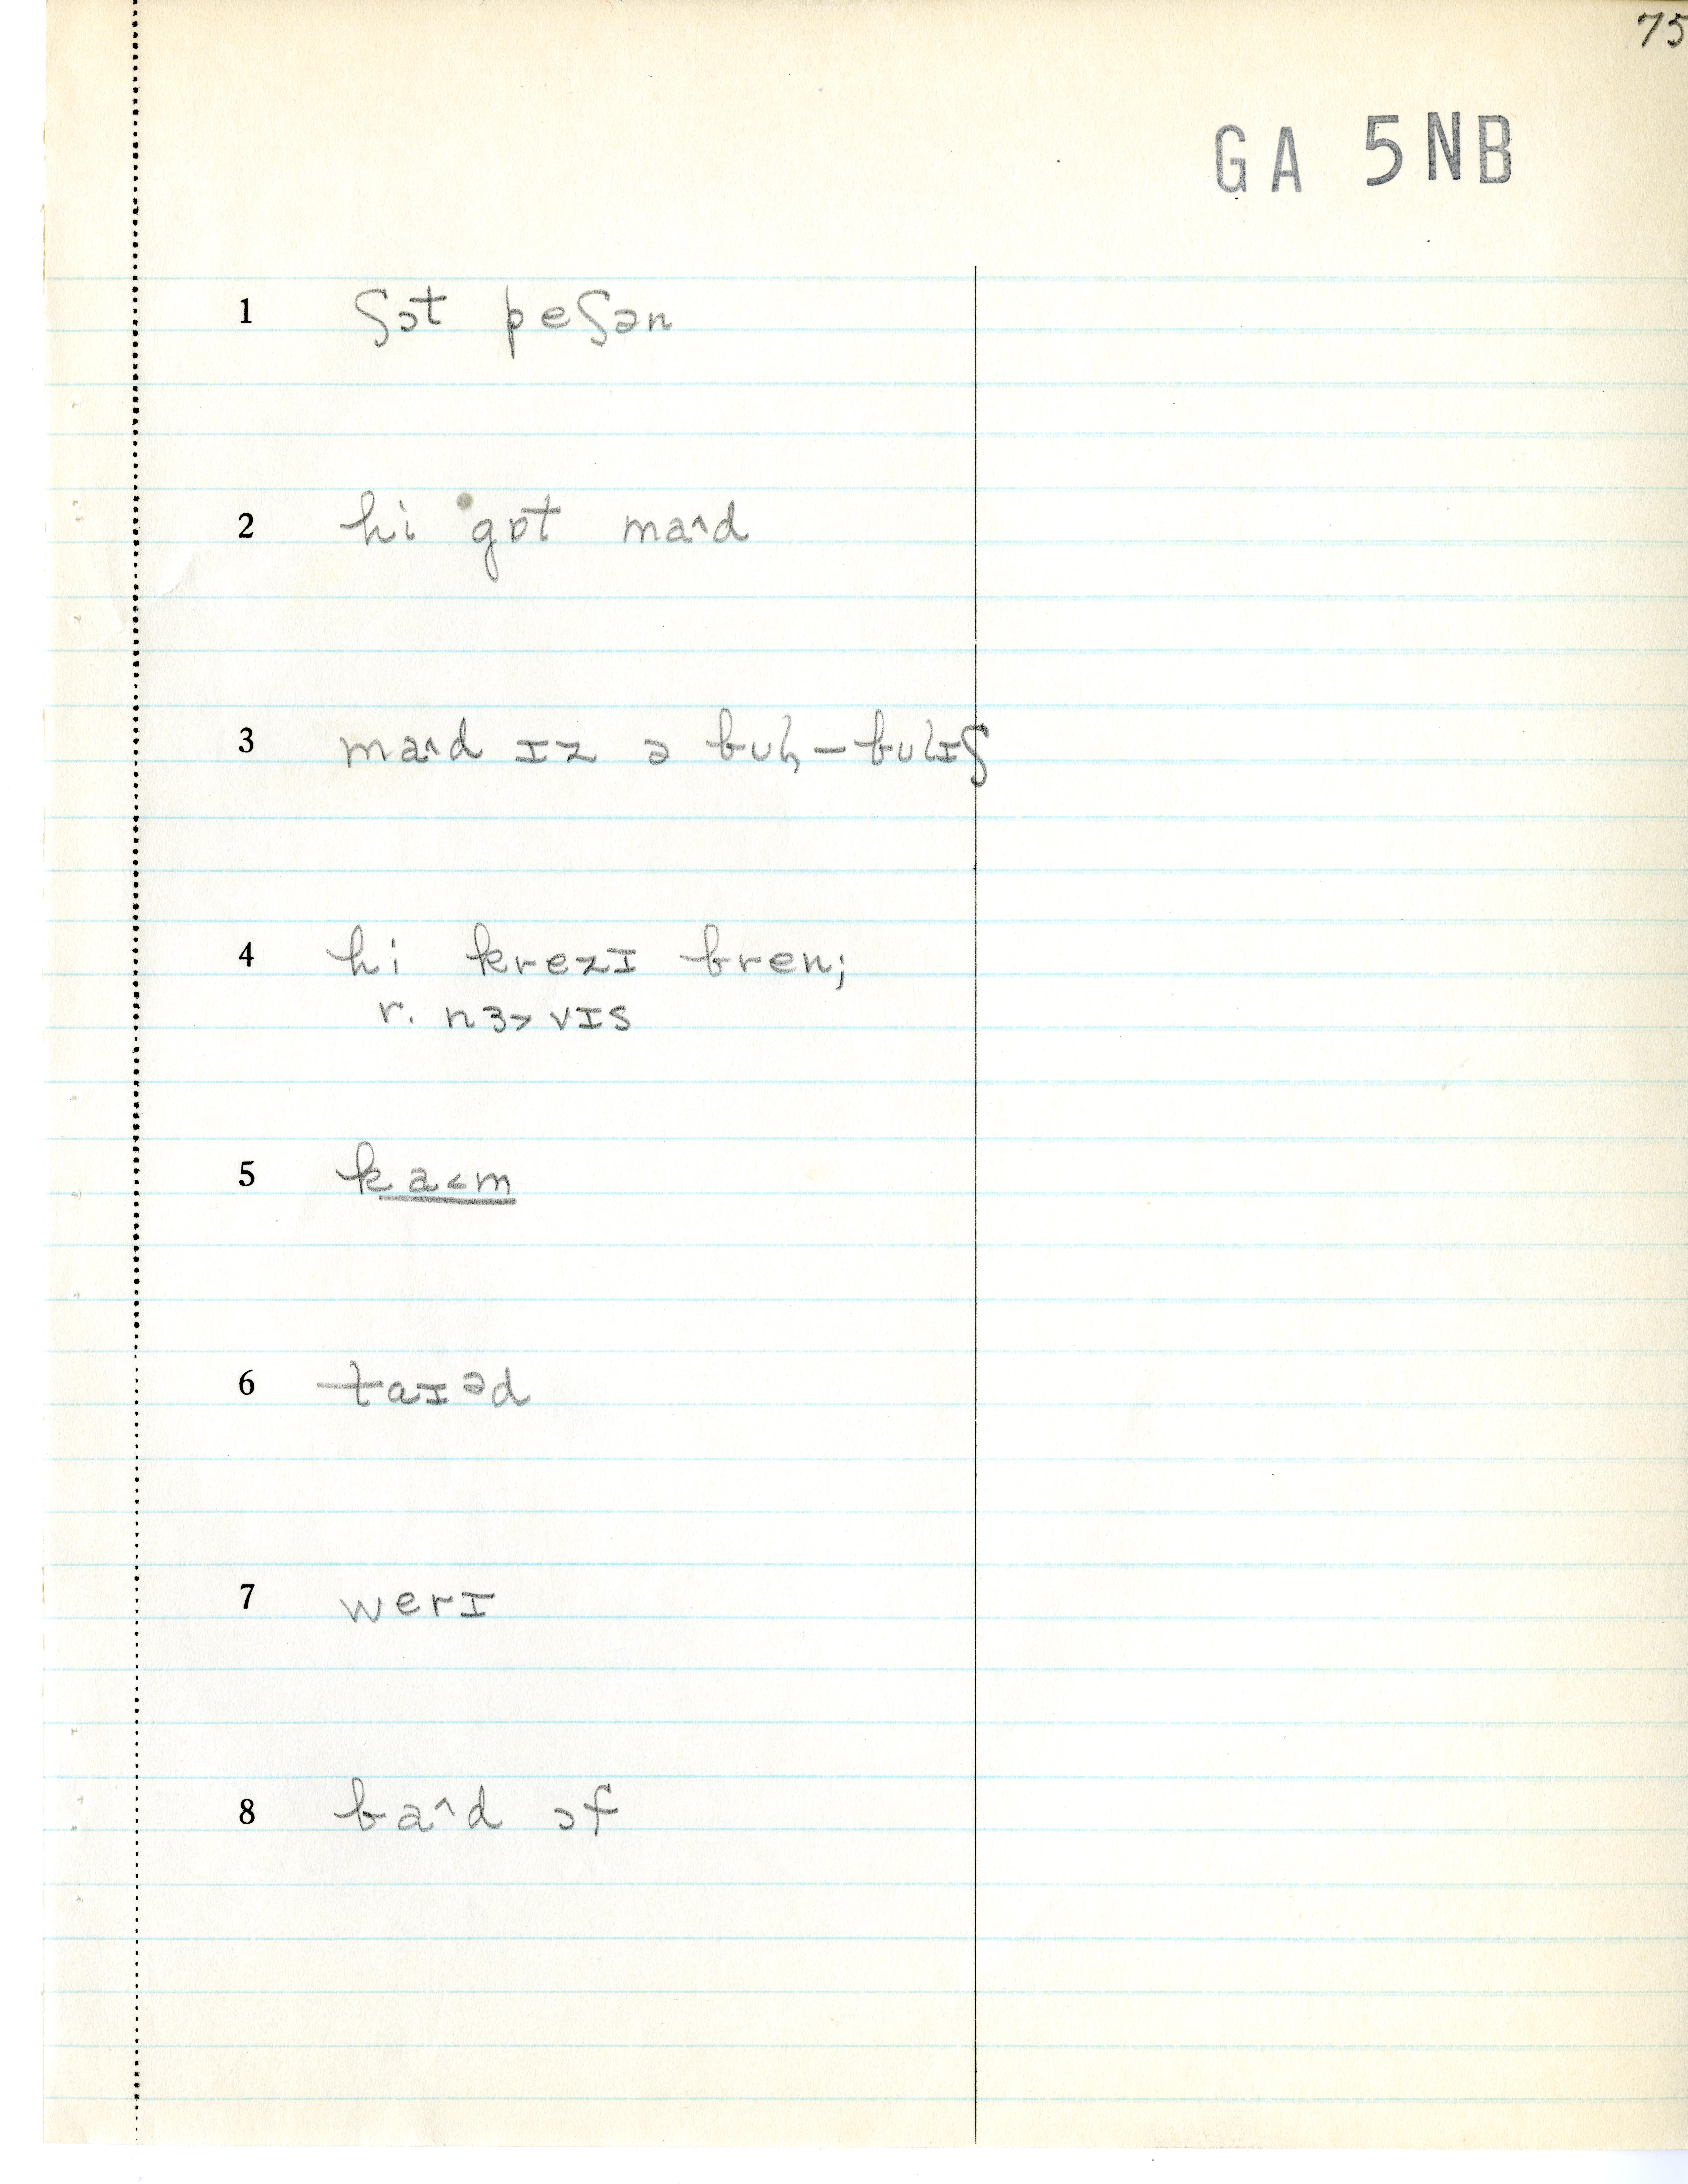 75
GA 5NB
1 ʃɔt peʃən
2 hi gɒt ma^d
3 ma^d ɪz ə bʊl̩-bʊlɪʃ
4 hi krezɪ bren;
r. nɜ> vɪs
5 ka<m
6 taɪəd
7 werɪ
8 ba^d ɔf